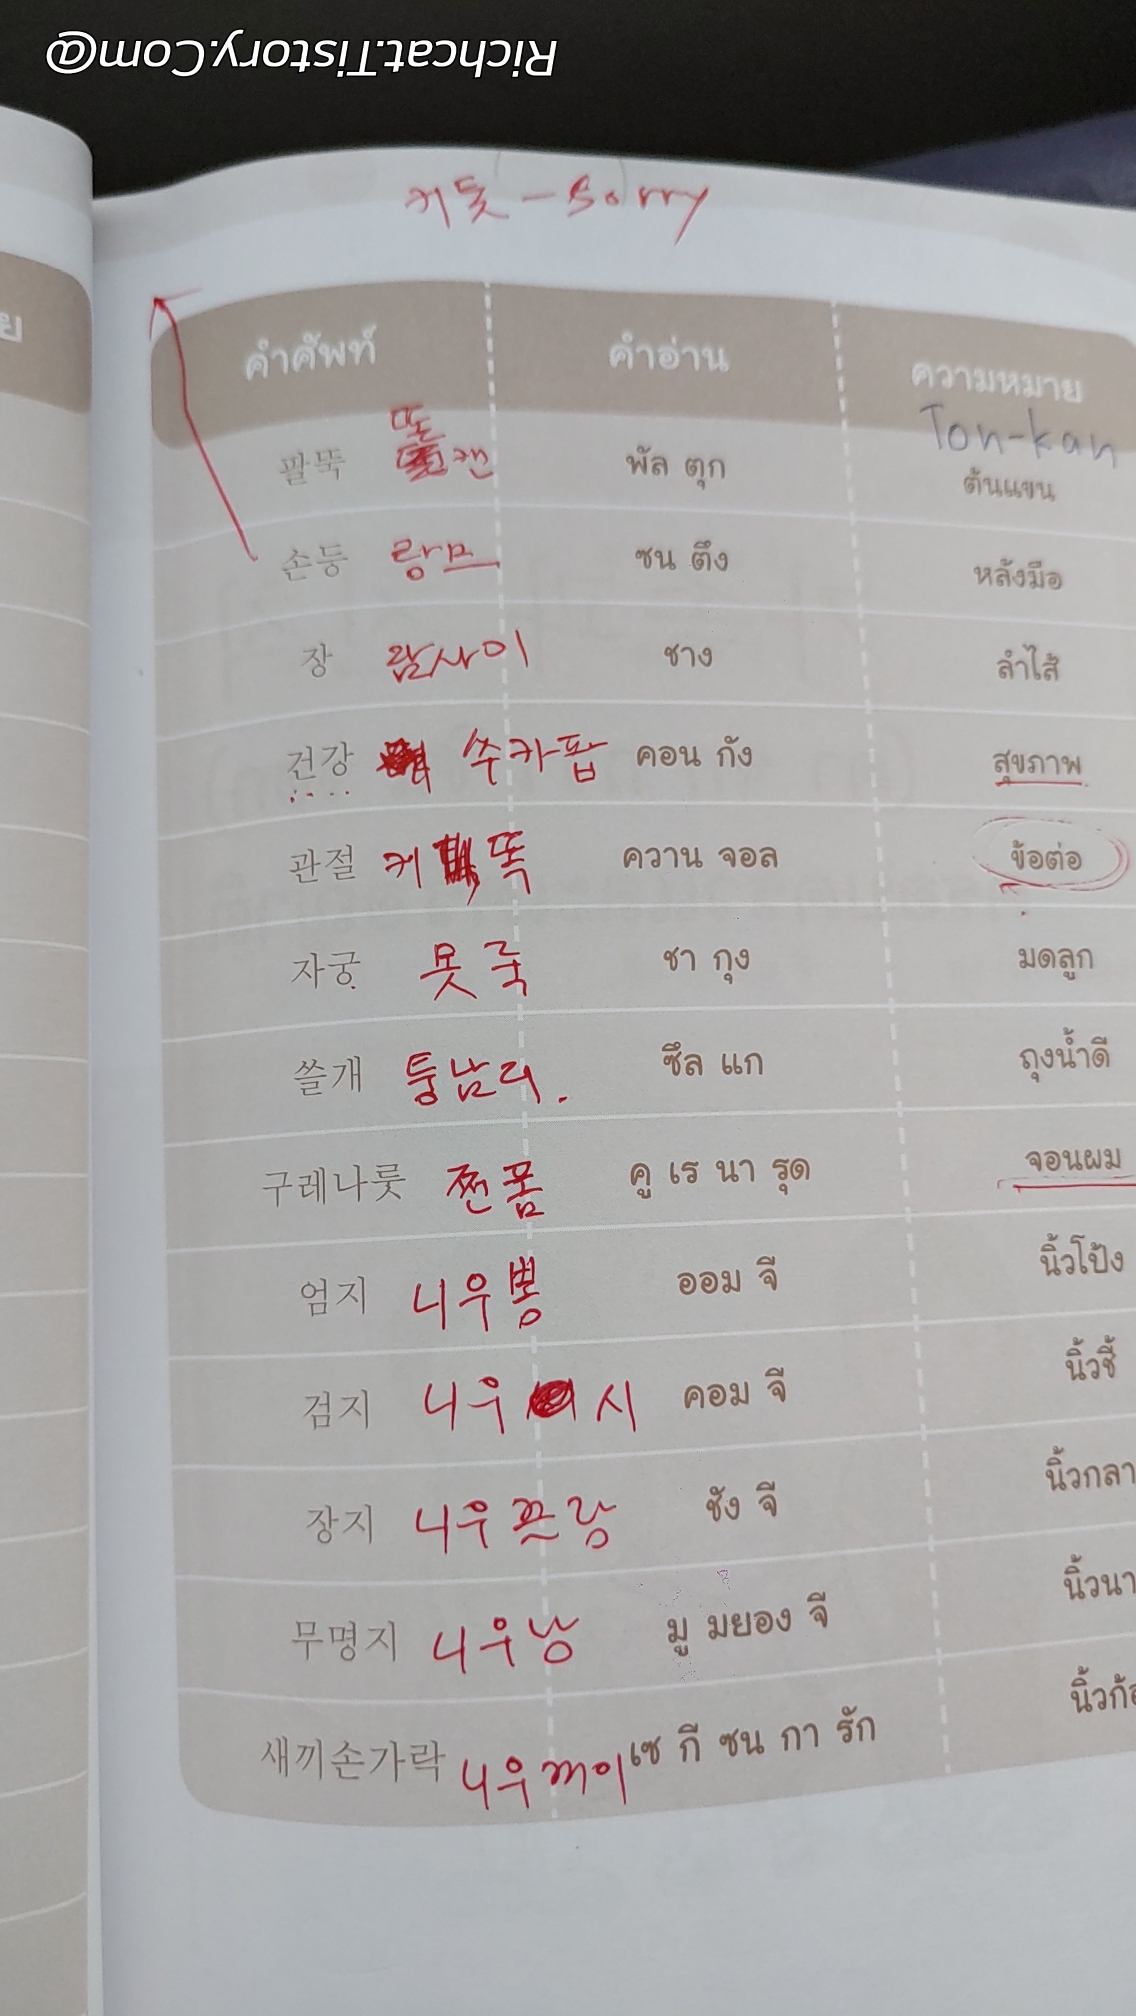 Richcat.Tistory.Com@
커톳 - Sorry
ย
คำศัพท์ คำอ่าน ความหมาย
Ton-kan
팔뚝 똔캔 พัล ตุก ต้นแขน
손등 랑므 ซน ตึง หลังมือ
장 람사이 ชาง ลำไส้
건강 쑤카팝 คอน กัง สุขภาพ
관절 커 똑 ควาน จอล ข้อต่อ
자궁 못룩 ชา กุง มดลูก
쓸개 퉁남디. ซึล แก ถุงน้ำดี
구레나룻 쩐폼 คู เร นา รุด จอนผม
엄지 니우뽕 ออม จี นิ้วโป้ง
검지 니우 시 คอม จี นิ้วชี้
장지 니우끄랑 ชัง จี นิ้วกลา
무명지 니우낭 มู มยอง จี นิ้วนา
새끼손가락 니우꺼이 เซ กี ซน กา รัก นิ้วก้อ